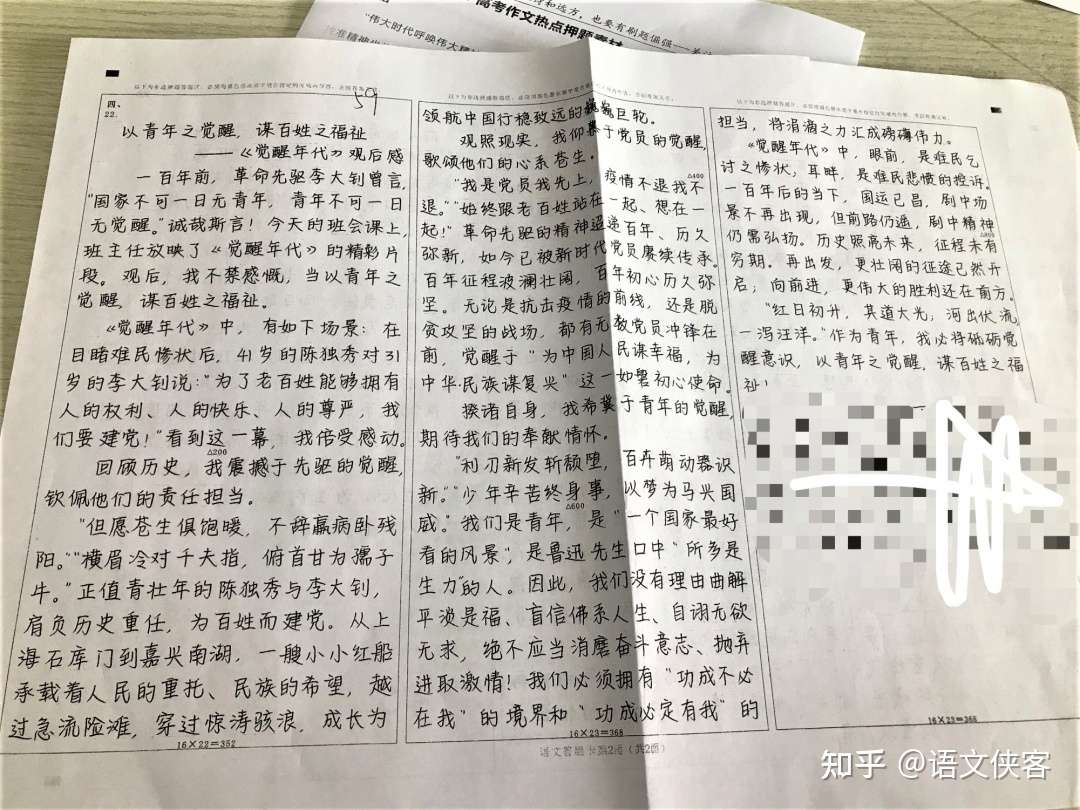 高考作文热点押题素材
"伟大时代呼唤伟大精神
59
四、
22.
以青年之觉醒，谋百姓之福祉
——《觉醒年代》观后感
一百年前，革命先驱李大钊曾言，
"国家不可一日无青年，青年不可一日
无觉醒。"诚哉斯言！今天的班会课上，
班主任放映了《觉醒年代》的精彩片
段。观后，我不禁感慨，当以青年之
觉醒，谋百姓之福祉。
《觉醒年代》中，有如下场景：在
目睹难民惨状后，41岁的陈独秀对31
岁的李大钊说："为了老百姓能够拥有
人的权利、人的快乐、人的尊严，我
们要建党！"看到这一幕，我倍受感动。
△200
回顾历史，我震撼于先驱的觉醒，
钦佩他们的责任担当。
"但愿苍生俱饱暖，不辞羸病卧残
阳。""横眉冷对千夫指，俯首甘为孺子
牛。"正值青壮年的陈独秀与李大钊，
肩负历史重任，为百姓而建党。从上
海石库门到嘉兴南湖，一艘小小红船
承载着人民的重托、民族的希望，越
过急流险滩，穿过惊涛骇浪，成长为
16×22=352
领航中国行稳致远的巍巍巨轮。
观照现实，我仰慕于党员的觉醒，
歌颂他们的心系苍生。
△400
"我是党员我先上，疫情不退我不
退。""始终跟老百姓站在一起、想在一
起！"革命先驱的精神迢递百年、历久
弥新，如今已被新时代党员赓续传承。
百年征程波澜壮阔，百年初心历久弥
坚。无论是抗击疫情的前线，还是脱
贫攻坚的战场，都有无数党员冲锋在
前，觉醒于"为中国人民谋幸福，为
中华民族谋复兴"这一如磐初心使命。
揆诸自身，我希冀于青年的觉醒，
期待我们的奉献情怀。
"利刃新发斩颓堕，百卉萌动器识
新。""少年辛苦终身事，以梦为马兴国
△600
威。"我们是青年，是"一个国家最好
看的风景"，是鲁迅先生口中"所多是
生力"的人。因此，我们没有理由曲解
平淡是福、盲信佛系人生、自诩无欲
无求，绝不应当消磨奋斗意志、抛弃
进取激情！我们必须拥有"功成不必
在我"的境界和"功成必定有我"的
16×23=368
语文答题卡第2面（共2面）
担当，将涓滴之力汇成磅礴伟力。
《觉醒年代》中，眼前，是难民乞
讨之惨状，耳畔，是难民悲愤的控诉。
一百年后的当下，国运已昌，剧中场
景不再出现，但前路仍遥，剧中精神
△800
仍需弘扬。历史照亮未来，征程未有
穷期。再出发，更壮阔的征途已然开
启；向前进，更伟大的胜利还在前方。
"红日初升，其道大光；河出伏流，
一泻汪洋。"作为青年，我必将砥砺觉
醒意识，以青年之觉醒，谋百姓之福
祉！
16×23=368
知乎 @语文侠客